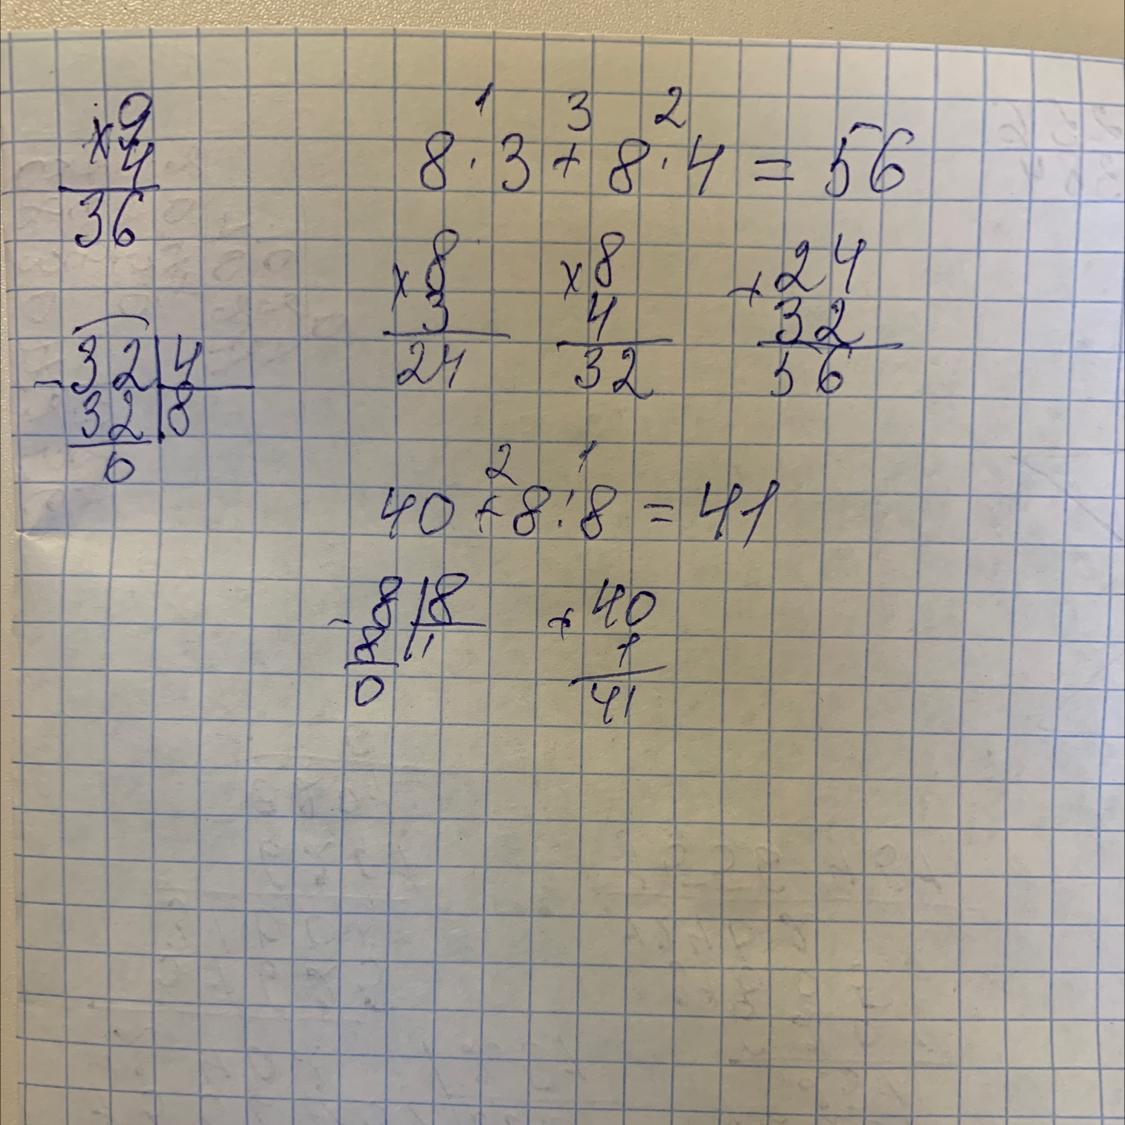 ×9
4
36
32 | 4
- 32 | 8
0
1 3 2
8 · 3 + 8 · 4 = 56
×8
3
24
×8
4
32
+24
32
56
2 1
40 + 8 : 8 = 41
- 8 | 8
8 | 1
0
+ 40
1
41